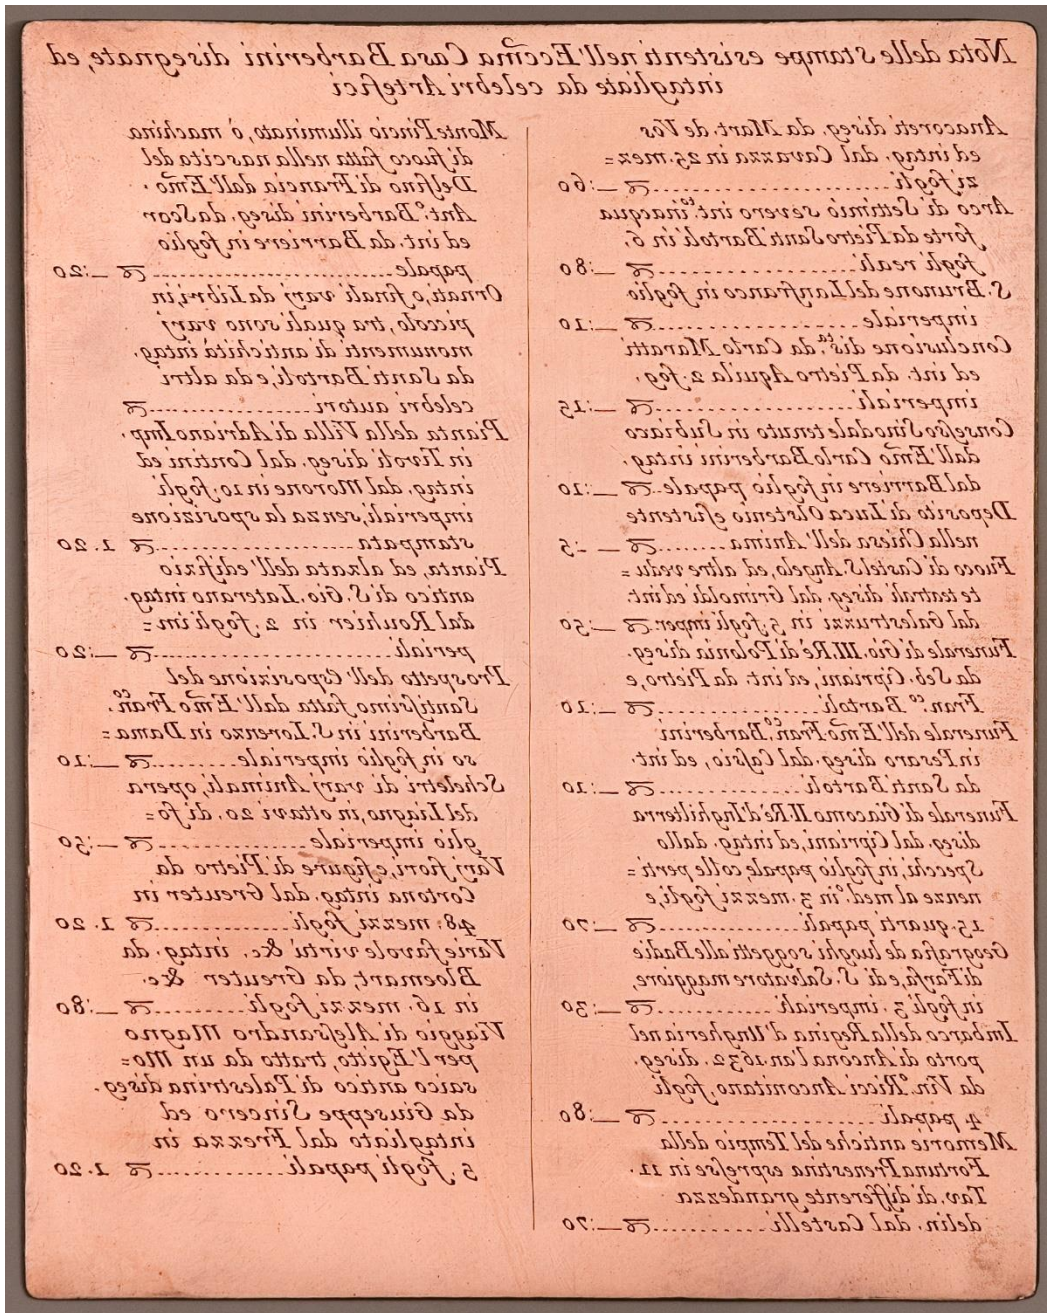 Nota delle Stampe esistenti nell'Eccm̃a Casa Barberini disegnate, ed
intagliate da celebri Artefici
Anacoreti diseg. da Mart. de Vos
ed intag. dal Cavazza in 25. mez=
zi fogli .................... ꝟ —:60
Arco di Settimio severo int.to in acqua
forte da Pietro Santi Bartoli in 6.
fogli reali .................... ꝟ —:80
S. Brunone del Lanfranco in foglio
imperiale .................... ꝟ —:10
Conclusione dis.ta da Carlo Maratti
ed int. da Pietro Aquila 2. fog.
imperiali .................... ꝟ —:15
Consesso Sinodale tenuto in Subiaco
dall'Em̃o Carlo Barberini intag.
dal Barriere in foglio papale .. ꝟ —:10
Deposito di Luca Olstenio esistente
nella Chiesa dell'Anima ........ ꝟ — :5
Fuoco di Castel S. Angelo, ed altre vedu=
te teatrali diseg. dal Grimoldi ed int.
dal Galestruzzi in 5. fogli imper. ꝟ —:50
Funerale di Gio. III. Rè di Polonia diseg.
da Seb. Cipriani, ed int. da Pietro, e
Fran.co Bartoli .................... ꝟ —:10
Funerale dell'Em̃o Fran.co Barberini
in Pesaro diseg. dal Cassio, ed int.
da Santi Bartoli .................... ꝟ —:10
Funerale di Giacomo II. Rè d'Inghilterra
diseg. dal Cipriani, ed intag. dallo
Specchi, in foglio papale, colle perti=
nenze al med.o in 3. mezzi fogli, e
15. quarti papali .................... ꝟ —:70
Geografia de luoghi soggetti alle Badie
di Farfa, e di S. Salvatore maggiore,
in fogli 3. imperiali .................... ꝟ —:30
Imbarco della Regina d'Ungheria nel
porto di Ancona l'an. 1632. diseg.
da Vin.o Ricci Anconitano, fogli
4 papali .................... ꝟ —:80
Memorie antiche del Tempio della
Fortuna Prenestina espresse in 11.
Tav. di differente grandezza
delin. dal Castelli .................... ꝟ —:70
Monte Pincio illuminato, ò machina
di fuoco fatta nella nascita del
Delfino di Francia dall'Em̃o
Ant.o Barberini diseg. da Scor
ed int. da Barriere in foglio
papale .................... ꝟ —:20
Ornati, o finali varj da Libri, in
piccolo, tra quali sono varj
monumenti di antichità intag.
da Santi Bartoli, e da altri
celebri autori .................... ꝟ
Pianta della Villa di Adriano Imp.
in Tivoli diseg. dal Contini ed
intag. dal Morone in 10. fogli
imperiali, senza la sposizione
stampata .................... ꝟ 1. 20
Pianta, ed alzata dell'edifizio
antico di S. Gio. Laterano intag.
dal Rouhier in 2. fogli im=
periali .................... ꝟ —:20
Prospetto dell'Esposizione del
Santissimo fatta dall'Em̃o Fran.co
Barberini in S. Lorenzo in Dama=
so in foglio imperiale .......... ꝟ —:10
Scheletri di varj Animali, opera
del Liagno, in ottavi 20. di fo=
glio imperiale .................... ꝟ —:50
Varj fiori, e figure di Pietro da
Cortona intag. dal Greuter in
48. mezzi fogli .................... ꝟ 1. 20
Varie favole virtù &c. intag. da
Bloemart, da Greuter &c.
in 16. mezzi fogli .................... ꝟ —:80
Viaggio di Alessandro Magno
per l'Egitto, tratto da un Mo=
saico antico di Palestrina diseg.
da Giuseppe Sincero ed
intagliato dal Frezza in
5. fogli papali .................... ꝟ 1. 20